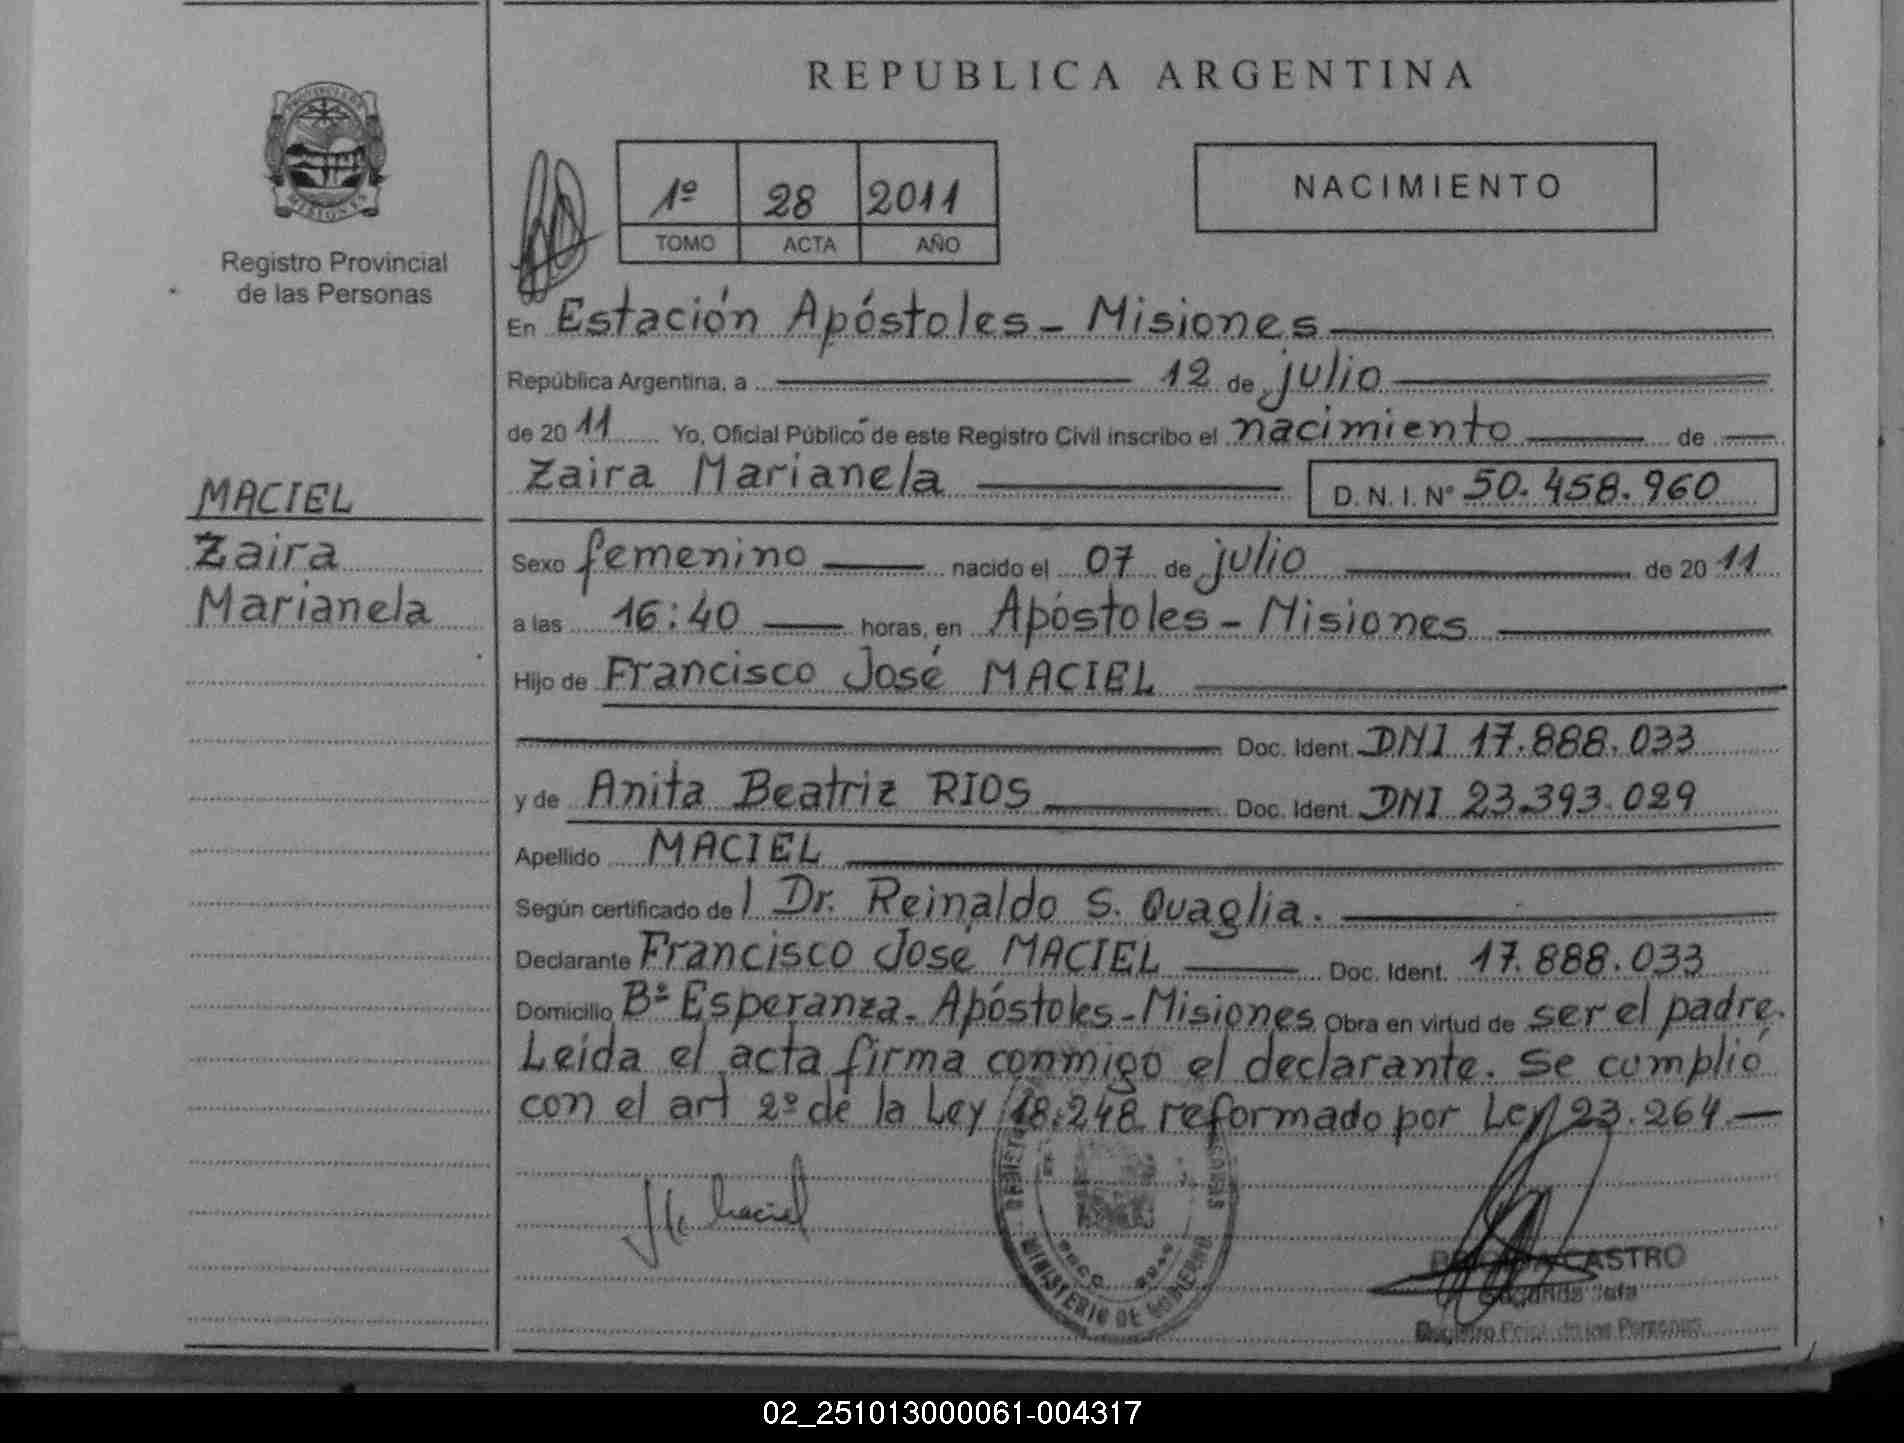 REPUBLICA ARGENTINA
PROVINCIA DE
MISIONES
Registro Provincial
de las Personas
1º 28 2011
TOMO ACTA AÑO
NACIMIENTO
En Estación Apóstoles - Misiones
República Argentina, a 12 de julio
de 2011 Yo, Oficial Público de este Registro Civil inscribo el nacimiento de
Zaira Marianela D.N.I. Nº 50.458.960
MACIEL
Zaira
Marianela
Sexo femenino nacido el 07 de julio de 2011
a las 16:40 horas, en Apóstoles - Misiones
Hijo de Francisco José MACIEL
Doc. Ident. DNI 17.888.033
y de Anita Beatriz RIOS Doc. Ident. DNI 23.393.029
Apellido MACIEL
Según certificado de l Dr. Reinaldo S. Quaglia.
Declarante Francisco José MACIEL Doc. Ident. 17.888.033
Domicilio Bº Esperanza. Apóstoles - Misiones Obra en virtud de ser el padre.
Leída el acta firma conmigo el declarante. Se cumplió
con el art 2º de la Ley 18.248 reformado por Ley 23.264 -
Maciel
MINISTERIO DE GOBIERNO
CASTRO
Segunda Jefa
Registro Prial. de las Personas
02_251013000061-004317